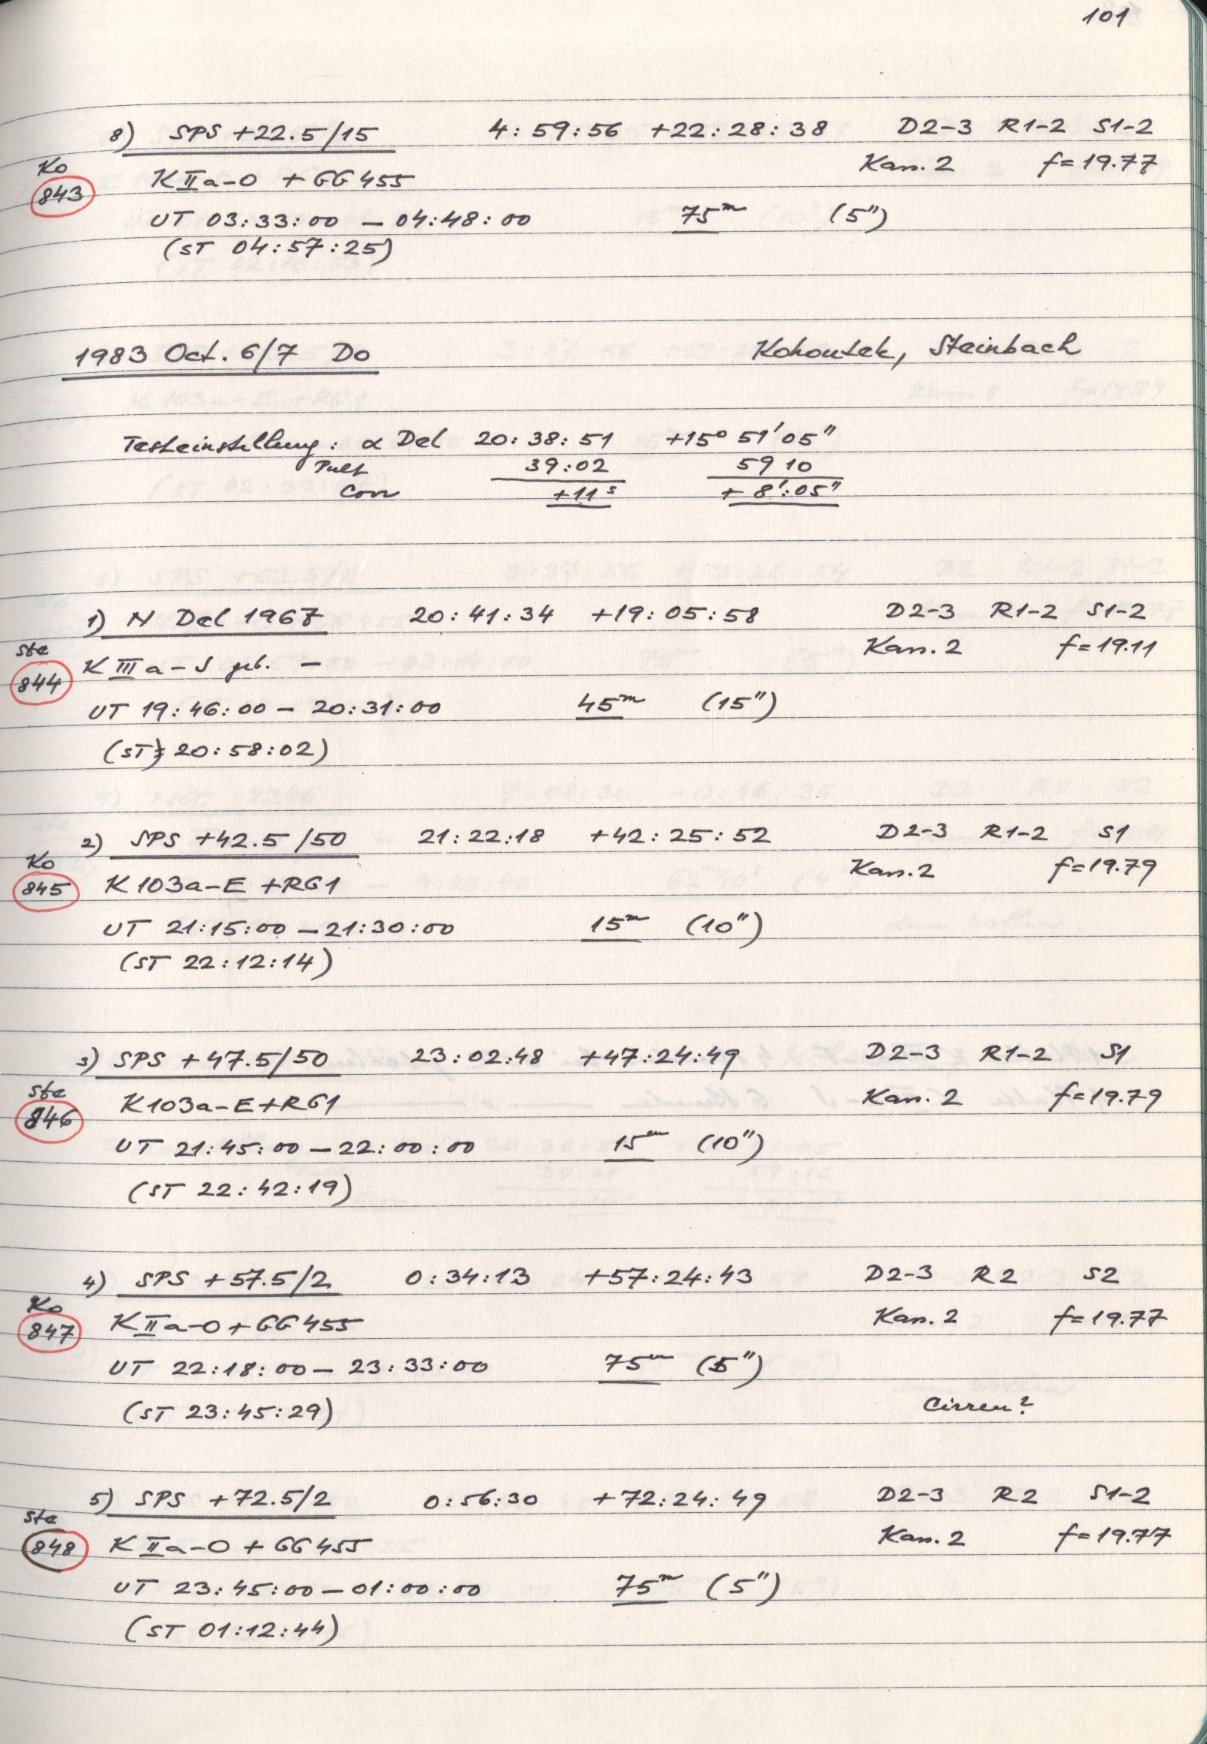 101
8) SPS +22.5/15 4:59:56 +22:28:38 D2-3 R1-2 S1-2
Ko Kan.2 f=19.77
843 K IIa-O + GG455
UT 03:33:00 – 04:48:00 75m (5")
(ST 04:57:25)
1983 Oct. 6/7 Do Kohoutek, Steinbach
Testeinstellung: α Del 20:38:51 +15° 51' 05"
Pult 39:02 59 10
Corr +11s + 8':05"
1) N Del 1967 20:41:34 +19:05:58 D2-3 R1-2 S1-2
Ste Kan.2 f=19.11
844 K IIIa-J geb. –
UT 19:46:00 – 20:31:00 45m (15")
(ST: 20:58:02)
2) SPS +42.5/50 21:22:18 +42:25:52 D2-3 R1-2 S1
Ko Kan.2 f=19.79
845 K 103a-E +RG1
UT 21:15:00 – 21:30:00 15m (10")
(ST 22:12:14)
3) SPS +47.5/50 23:02:48 +47:24:49 D2-3 R1-2 S1
Ste Kan.2 f=19.79
846 K103a-E+RG1
UT 21:45:00 – 22:00:00 15m (10")
(ST 22:42:19)
4) SPS +57.5/2 0:34:13 +57:24:43 D2-3 R2 S2
Ko Kan.2 f=19.77
847 K IIa-O+GG455
UT 22:18:00 – 23:33:00 75m (5")
(ST 23:45:29) Cirren?
5) SPS +72.5/2 0:56:30 +72:24:49 D2-3 R2 S1-2
Ste Kan.2 f=19.77
848 K IIa-O + GG455
UT 23:45:00 – 01:00:00 75m (5")
(ST 01:12:44)